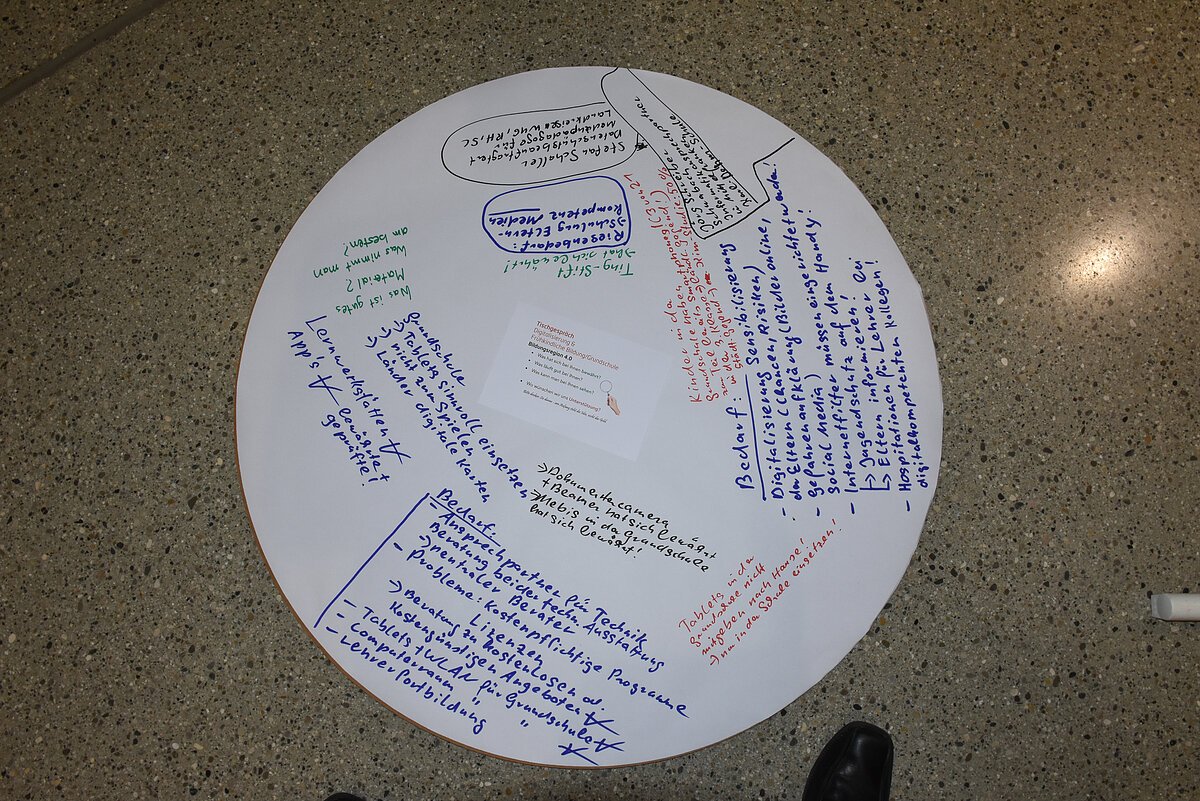 Tischgespräch
Digitalisierung &
Frühkindliche Bildung/Grundschule
Bildungsregion 4.0
• Was hat sich bei Ihnen bewährt?
• Was läuft gut bei Ihnen?
• Was kann man bei Ihnen sehen?
• Wo wünschen wir uns Unterstützung?
Stefan Schaller
Datenschutzbeauftragter
Medienpädagoge für
Landkreise WUG, RH, SC
Riesenbedarf:
→ Schulung Eltern:
Kompetenz Medien
Ting-Stift
→ hat sich bewährt!
Was ist gutes
Material?
Was nimmt man
am besten?
Grundschule
→ Tablets sinnvoll einsetzen
→ nicht zum Spielen
→ Länder digitale Karten
Lernwerkstätten
App's bewährt +
geprüfte!
→ Dokumentencamera
+ Beamer hat sich bewährt
→ Mebis in der Grundschule
hat sich bewährt!
Bedarf:
- Ansprechpartner für Technik
Beratung bei der techn. Ausstattung
→ neutraler Berater
- Probleme: Kostenpflichtige Programme
Lizenzen
→ Beratung zu kostenlosen od.
kostengünstigen Angeboten
- Tablets + WLAN für Grundschule
- Computerraum " "
- Lehrerfortbildung
Tablets in der
Grundschule nicht
mitgeben nach Hause!
→ nur in der Schule einsetzen!
Bedarf:
- Digitalisierung Sensibilisierung
der Eltern (Chancen, Risiken)
- Gefahrenaufklärung (Bilder online,
Social Media)
- Internetfilter müssen eingerichtet werden!
- Jugendschutz auf dem Handy!
↳ Jugend informieren!
↳ Eltern für Lehrer bei
- Hospitationen
digitalkompetenten Kollegen!
Kinder in der
Grundschule haben Smartphone